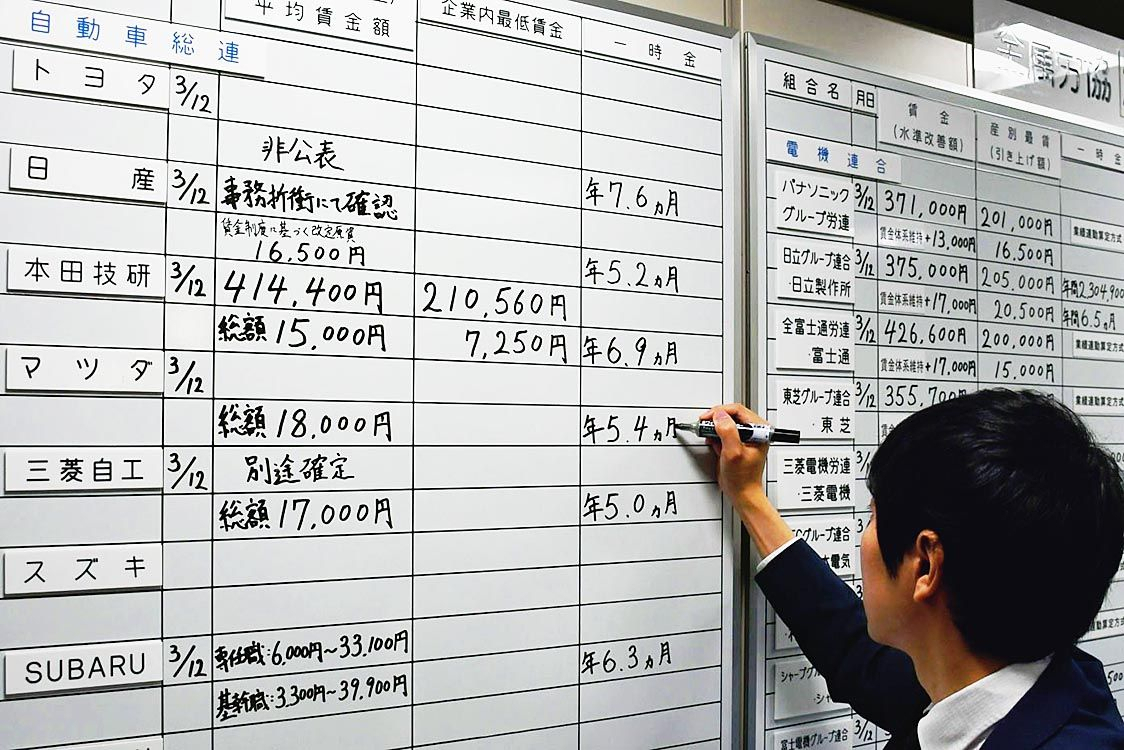 平均賃金額
企業内最低賃金
一時金
自動車総連
トヨタ 3/12
非公表 年7.6ヵ月
日産 3/12 事務折衝にて確認
賃金制度に基づく改定原資
16,500円 年5.2ヵ月
本田技研 3/12 414,400円 210,560円
総額15,000円 7,250円 年6.9ヵ月
マツダ 3/12
総額18,000円 年5.4ヵ月
三菱自工 3/12 別途確定
総額17,000円 年5.0ヵ月
スズキ
SUBARU 3/12 専任職:6,000円~33,100円 年6.3ヵ月
基幹職:3,300円~39,900円
金属労協
組合名 月日 賃金 産別最賃 一時金
(水準改善額) (引き上げ額)
電機連合
パナソニック 3/12 371,000円 201,000円
グループ労連 賃金体系維持+13,000円 16,500円 業績連動算定方式
日立グループ連合 3/12 375,000円 205,000円 年間2,304,900
・日立製作所 賃金体系維持+17,000円 20,500円 年間6.5ヵ月
全富士通労連 3/12 426,600円 200,000円 業績連動算定方式
・富士通 賃金体系維持+17,000円 15,000円
東芝グループ連合 3/12 355,700 業績連動算定方式
・東芝
三菱電機労連
・三菱電機
グループ連合
電気
シャープグループ
富士電機グループ連合